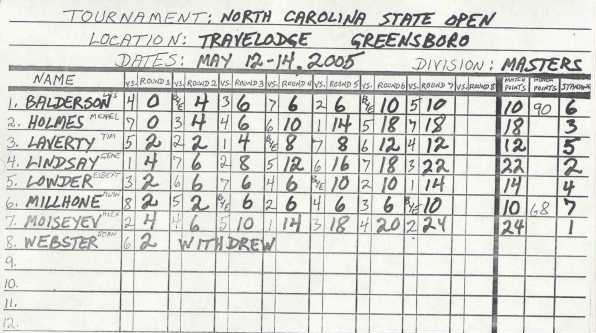 TOURNAMENT: NORTH CAROLINA STATE OPEN
LOCATION: TRAVELODGE GREENSBORO
DATES: MAY 12-14, 2005 DIVISION: MASTERS
NAME VS. ROUND 1 VS. ROUND 2 VS. ROUND 3 VS. ROUND 4 VS. ROUND 5 VS. ROUND 6 VS. ROUND 7 VS. ROUND 8 MATCH POINTS HONOR POINTS STANDING
1. BALDERSON 4 0 BYE 4 3 6 7 6 2 6 BYE 10 5 10 10 90 6
2. HOLMES MICHAEL 7 0 3 4 4 6 6 10 1 14 5 18 7 18 18 3
3. LAVERTY TIM 5 2 2 2 1 4 BYE 8 7 8 6 12 4 12 12 5
4. LINDSAY GENE 1 4 7 6 2 8 5 12 6 16 7 18 3 22 22 2
5. LOWDER EGBERT 3 2 6 6 7 6 4 6 BYE 10 2 10 1 14 14 4
6. MILLHONE ALAN 8 2 5 2 BYE 6 2 6 4 6 3 6 BYE 10 10 68 7
7. MOISEYEV ALEX 2 4 4 6 5 10 1 14 3 18 4 20 2 24 24 1
8. WEBSTER JOHN 6 2 WITHDREW
9.
10.
11.
12.